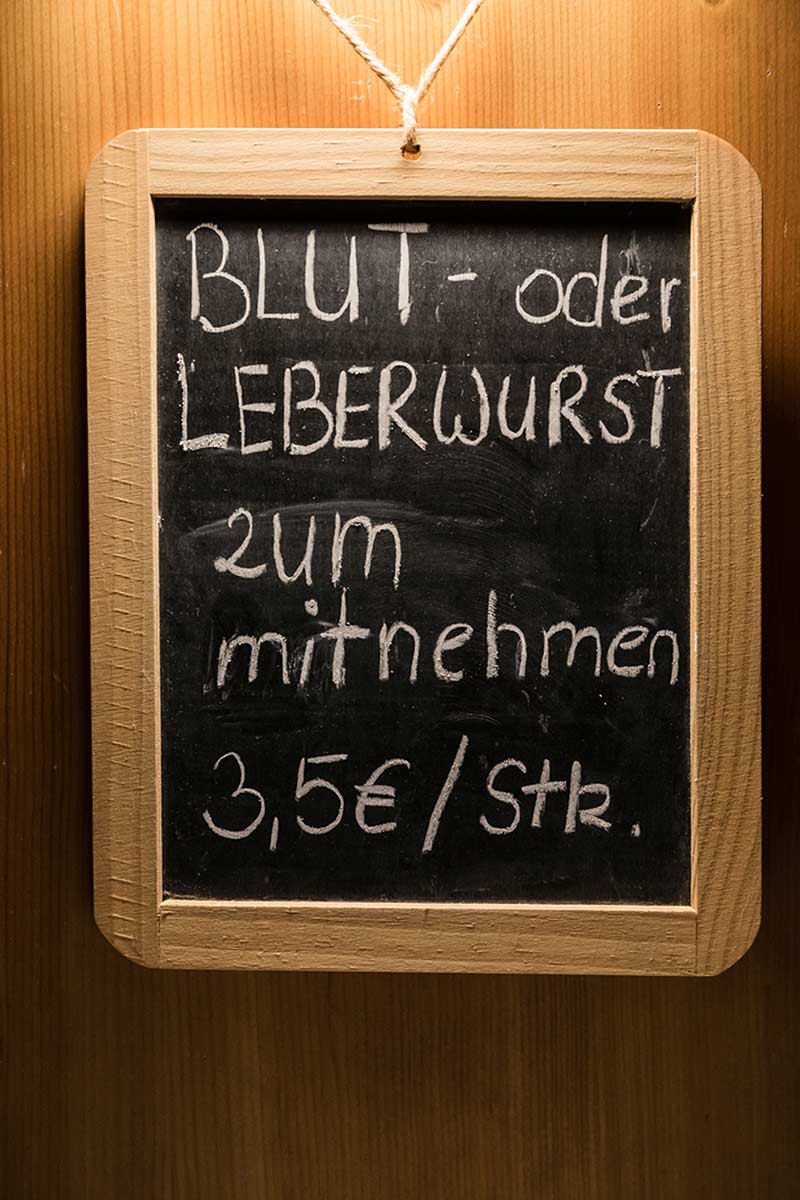 BLUT- oder
LEBERWURST
zum
mitnehmen
3,5€/Stk.